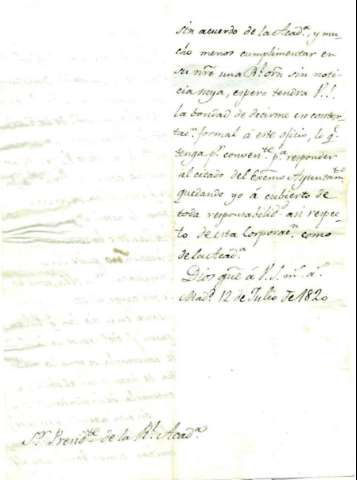 sin acuerdo de la Acad.ª, y mu-
cho menos cumplimentar en
su nre una Rl. orn sin noti-
cia suya, espero tendrá V.S.
la bondad de decirme en contes-
tac.n formal á este oficio, lo q.e
tenga p.r conven.te p.ª responder
al citado del Exćmo Ayuntam.to
quedando yo á cubierto de
toda responsabilid.d asi respec-
to de esta Corporac.n como
de la Acad.ª
Dios gue á V.S. m.s a.s
Mad.d 12 de Julio de 1820
S.r Presid.te de la Rl. Acad.ª